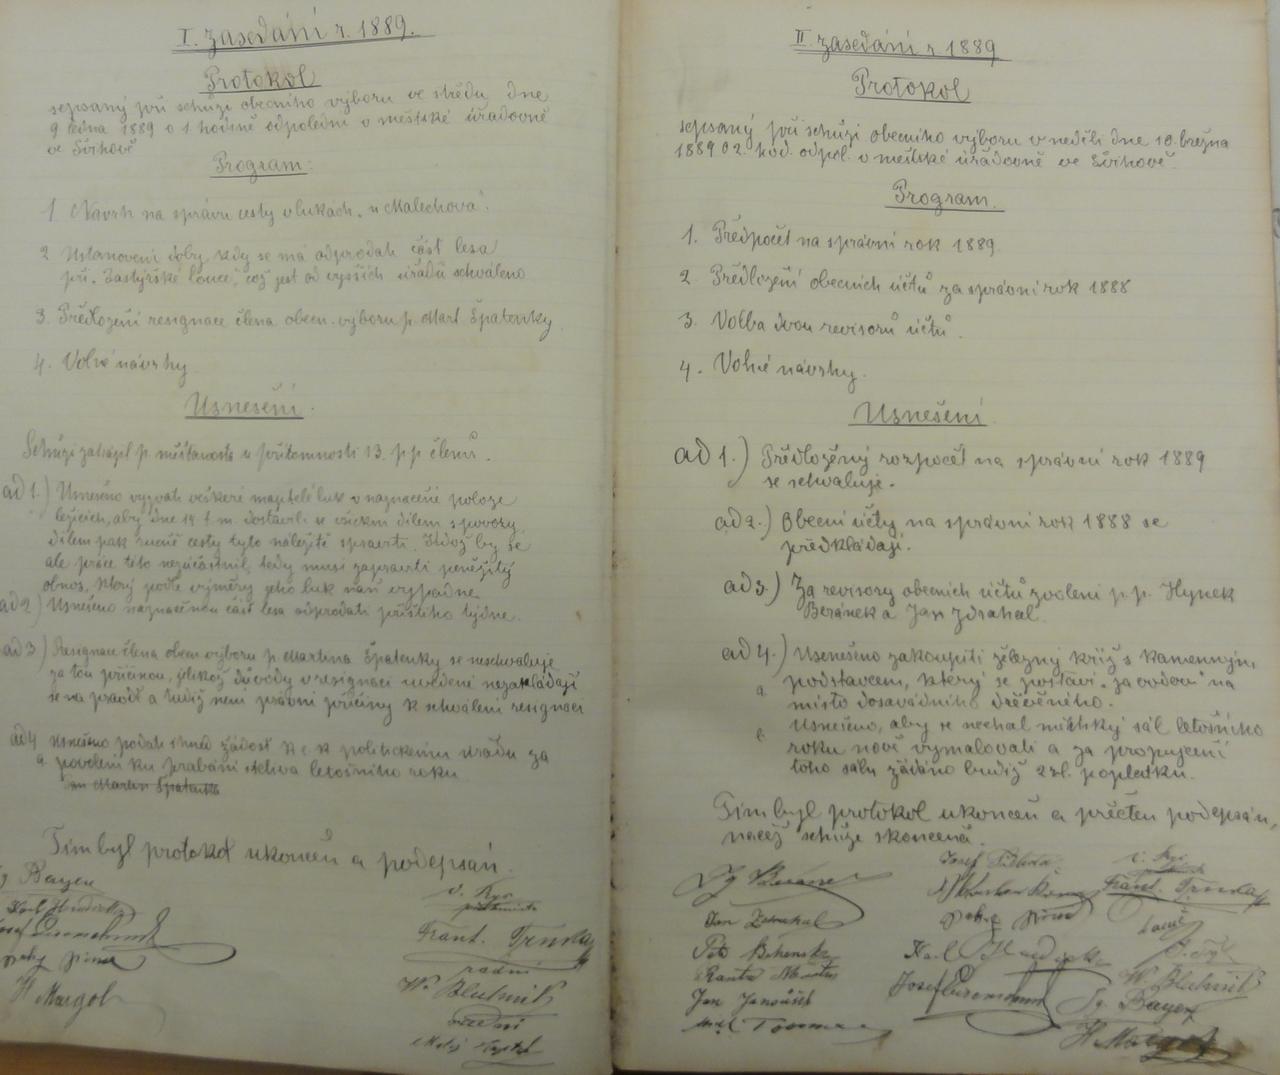 I. Zasedání r. 1889.
Protokol
sepsaný při schůzi obecního výboru ve středu dne
9 ledna 1889 o 1 hodině odpolední v městské úřadovně
ve Švihově
Program:
1. Návrh na správu cesty v lukách „u Malechova".
2 Ustanovení doby, kdy se má odprodati část lesa
při „Pastýřské louce", což jest od vyšších úřadů schváleno
3. Předložení resignace člena obecn. výboru p. Mart. Špatenky.
4. Volné návrhy.
Usnešení.
Schůzi zahájil p. měšťanosta u přítomnosti 13. p.p. členů.
ad 1.) Usnešeno vyzvati veškeré majitele luk v naznačené poloze
ležících, aby dne 14 t. m. dostavili se všickni dílem s povozy,
dílem pak ručně cesty tyto náležitě spraviti. Kdož by se
ale práce této nezúčastnil, tedy musí zapraviti peněžitý
obnos, který podle výměry jeho luk naň vypadne.
ad 2) Usnešeno naznačenou část lesa odprodati příštího týdne.
ad 3) Resignace člena obecn. výboru p. Martina Špatenky se neschvaluje
za tou příčinou, jelikož důvody v resignaci uvedené nezakládají
se na pravdě a tudíž není právní příčiny k schválení resignaci
ad 4 Usnešeno podati ihned žádost k c. k politickému úřadu za
a povolení ku hrabání steliva letošního roku
Martin Špatenka
Tím byl protokol ukončen a podepsán.
Bayer
Karl Hudečky
Josef
H Margol
v. Ryc
Frant. Trnka
radní
W. Blutník
radní
Matěj
II. zasedání r 1889
Protokol
sepsaný při schůzi obecního výboru v neděli dne 10. března
1889 o 2. hod. odpol. v městské úřadovně ve Švihově.
Program.
1. Předpočet na správní rok 1889.
2 Předložení obecních účtů za správní rok 1888
3. Volba dvou revisorů účtů.
4. Volné návrhy.
Usnešení.
ad 1.) Předložený rozpočet na správní rok 1889
se schvaluje.
ad 2.) Obecní účty na správní rok 1888 se
předkládají.
ad 3.) Za revisory obecních účtů zvoleni p. p. Hynek
Beránek a Jan Zdrahal.
ad 4.) Usenešeno zakoupiti železný kříž s kamenným
a. podstavcem, který se postaví „za vodou" na
místo dosavádního dřevěného.
b Usnešeno, aby se nechal městský sál letošního
roku nově vymalovati a za propujčení
toho sálu žádáno budiž 2 zl. poplatku.
Tím byl protokol ukončen a přečten podepsán,
načež schůze skončena.
Josef
v. Ryc
Frant. Trnka
Jan Zdrahal
Karl Hudečky
Josef
W. Blutník
Jg. Bayer
Jan Janoušek
H Margol